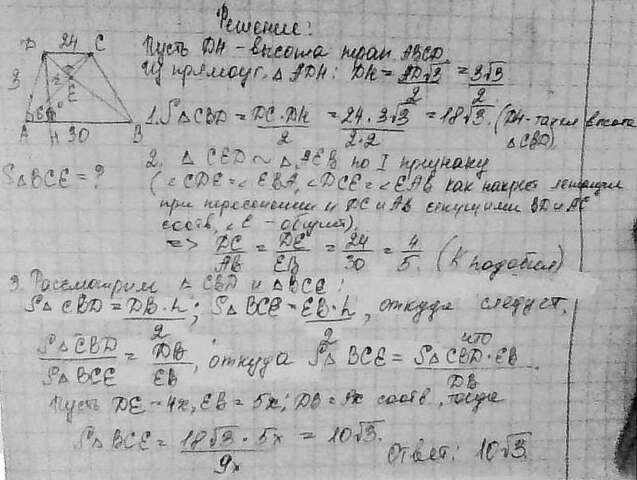 Решение:
D 24 C
Пусть DH - высота трап. ABCD.
Из прямоуг. △ ADH: DH = AD√3/2 = 3√3/2
3
E
60°
A H 30 B
1. S△CBD = DC·DH/2 = 24·3√3/2·2 = 18√3. (DH - также высота △CBD)
S△BCE = ?
2. △ CED ~ △ AEB по I признаку
(∠CDE = ∠EBA, ∠DCE = ∠EAB как накрест лежащие
при пересечении DC и AB секущими BD и AC
соотв, ∠E - общий).
=> DC/AB = DE/EB = 24/30 = 4/5. (k подобия)
3. Рассмотрим △ CBD и △BCE:
S△ CBD = DB·h/2; S△BCE = EB·h/2, откуда следует,
что
S△CBD/S△BCE = DB/EB, откуда S△BCE = S△CBD·EB/DB.
Пусть DE = 4x, EB = 5x; DB = 9x соотв, тогда
S△BCE = 18√3·5x/9x = 10√3.
Ответ: 10√3.